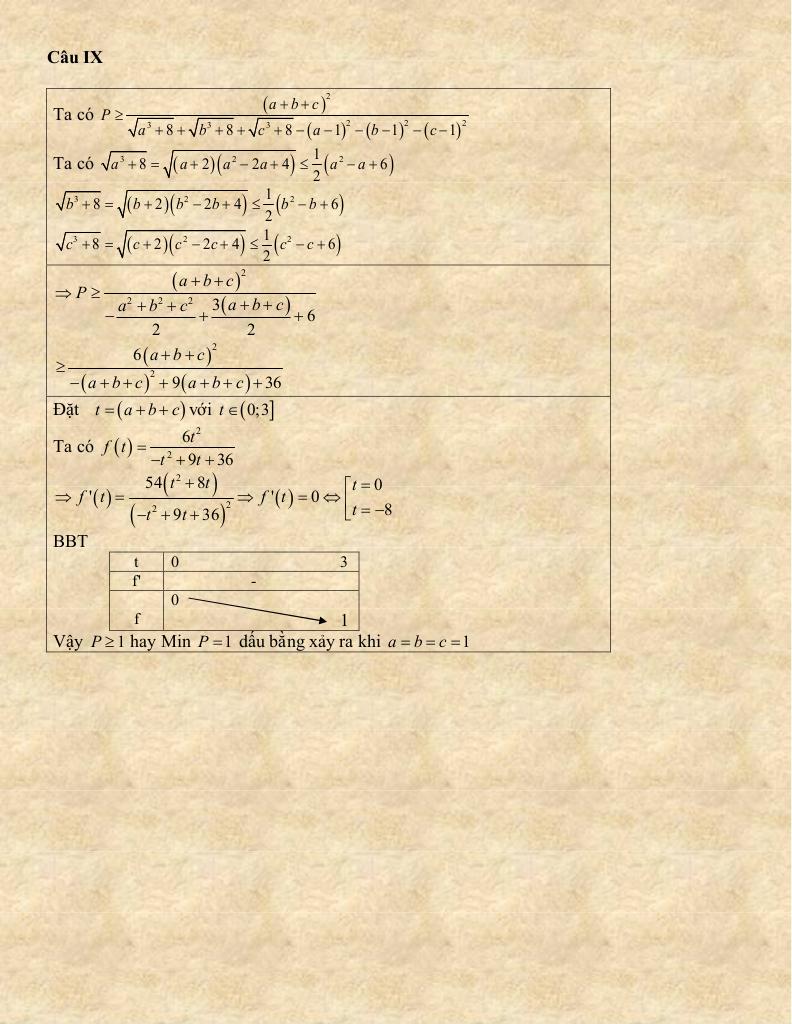 Câu IX
Ta có P ≥ (a+b+c)² / (√(a³+8) + √(b³+8) + √(c³+8) − (a−1)² − (b−1)² − (c−1)²)
Ta có √(a³+8) = √((a+2)(a²−2a+4)) ≤ 1/2 (a²−a+6)
√(b³+8) = √((b+2)(b²−2b+4)) ≤ 1/2 (b²−b+6)
√(c³+8) = √((c+2)(c²−2c+4)) ≤ 1/2 (c²−c+6)
⇒ P ≥ (a+b+c)² / (−(a²+b²+c²)/2 + 3(a+b+c)/2 + 6)
≥ 6(a+b+c)² / (−(a+b+c)² + 9(a+b+c) + 36)
Đặt t = (a+b+c) với t ∈ (0;3]
Ta có f(t) = 6t² / (−t²+9t+36)
⇒ f'(t) = 54(t²+8t) / (−t²+9t+36)² ⇒ f'(t) = 0 ⇔ [t = 0
t = −8
BBT
t 0 3
f' -
0
f 1
Vậy P ≥ 1 hay Min P = 1 dấu bằng xảy ra khi a = b = c = 1